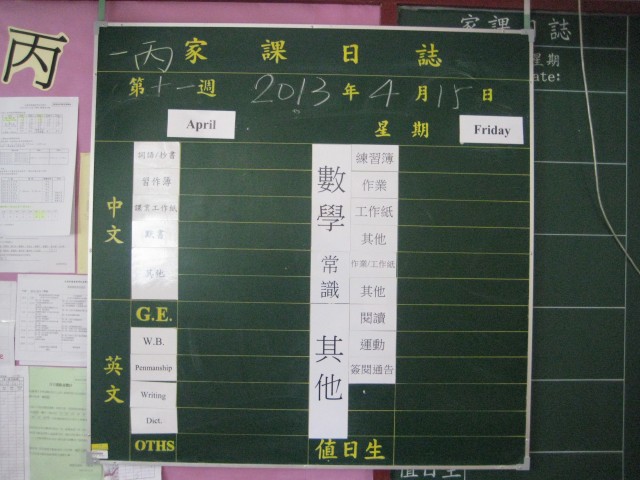 丙
一丙 家課日誌
第十一週 2013年4月15日
April
星期 Friday
中文
詞語/抄書
習作簿
默書
其他
英文
G.E.
W.B.
Penmanship
Writing
Dict.
OTHS
數學
練習簿
作業
工作紙
其他
常識
作業/工作紙
其他
其他
閱讀
運動
簽閱通告
值日生
家課日誌
星期
值日生